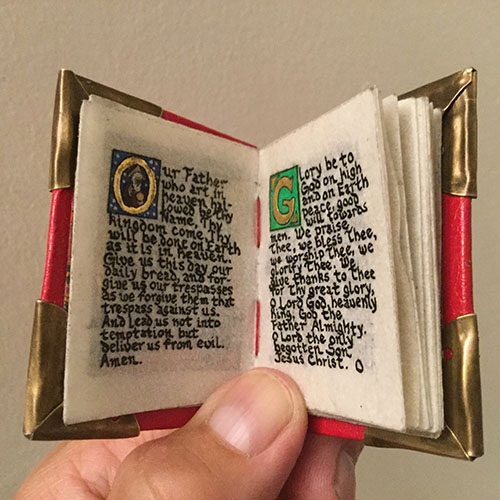 Our Father
who art in
heaven, hal-
lowed be thy
Name. Thy
kingdom come thy
will be done on Earth
as it is in heaven.
Give us this day our
daily bread, and for-
give us our trespasses
as we forgive them that
trespass against us.
And lead us not into
temptation but
deliver us from evil.
Amen.
Glory be to
God on high
and on Earth
peace, good
will towards
men. We praise
thee, we bless thee,
we worship thee, we
glorify thee. We
give thanks to thee
for thy great glory,
O Lord God, heavenly
king, God the
Father Almighty.
O Lord the only
begotten Son
Jesus Christ. O